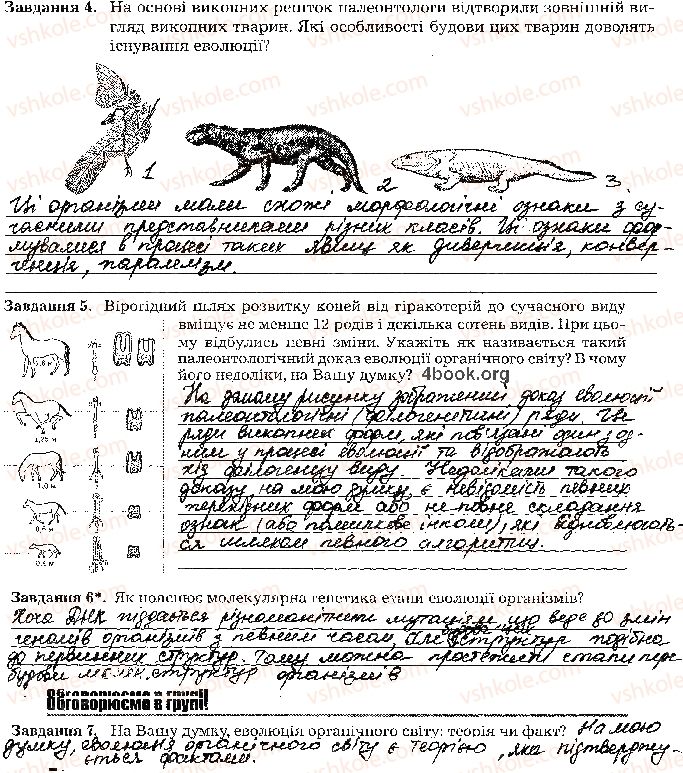 Завдання 4. На основі викопних решток палеонтологи відтворили зовнішній ви-
гляд викопних тварин. Які особливості будови цих тварин доводять
існування еволюції?
1
2
3
Ці організми мали схожі морфологічні ознаки з су-
часними представниками різних класів. Ці ознаки фор-
мувалися в процесі таких явищ як дивергенція, конвер-
генція, паралелізм.
Завдання 5. Вірогідний шлях розвитку коней від гіракотерій до сучасного виду
вміщує не менше 12 родів і декілька сотень видів. При цьо-
му відбулись певні зміни. Укажіть як називається такий
палеонтологічний доказ еволюції органічного світу? В чому
його недоліки, на Вашу думку?
4book.org
На даному рисунку зображений доказ еволюції
палеонтологічні (філогенетичні) ряди. Це
ряди викопних форм, які пов'язані один з од-
ним у процесі еволюції та відображають
хід філогенезу виду. Недоліками такого
доказу, на мою думку, є невідомість певних
перехідних форм або не повне складання
ознак (або помилкове інколи), які відновлюють-
ся шляхом певного алгоритму.
1,25 м
1,0 м
Завдання 6*. Як пояснює молекулярна генетика етапи еволюції організмів?
Хоча ДНК піддається різноманітним мутаціям, що веде до змін
геномів організмів з певним часом, але структур подібна
до первинних структур. Тому можна простежити етапи пере-
будови молек. структур організмів
Обговорюємо в групі!
Завдання 7. На Вашу думку, еволюція органічного світу: теорія чи факт? На мою
думку, еволюція органічного світу є теорією, яка підтверджу-
ється фактами.
vshkole.com